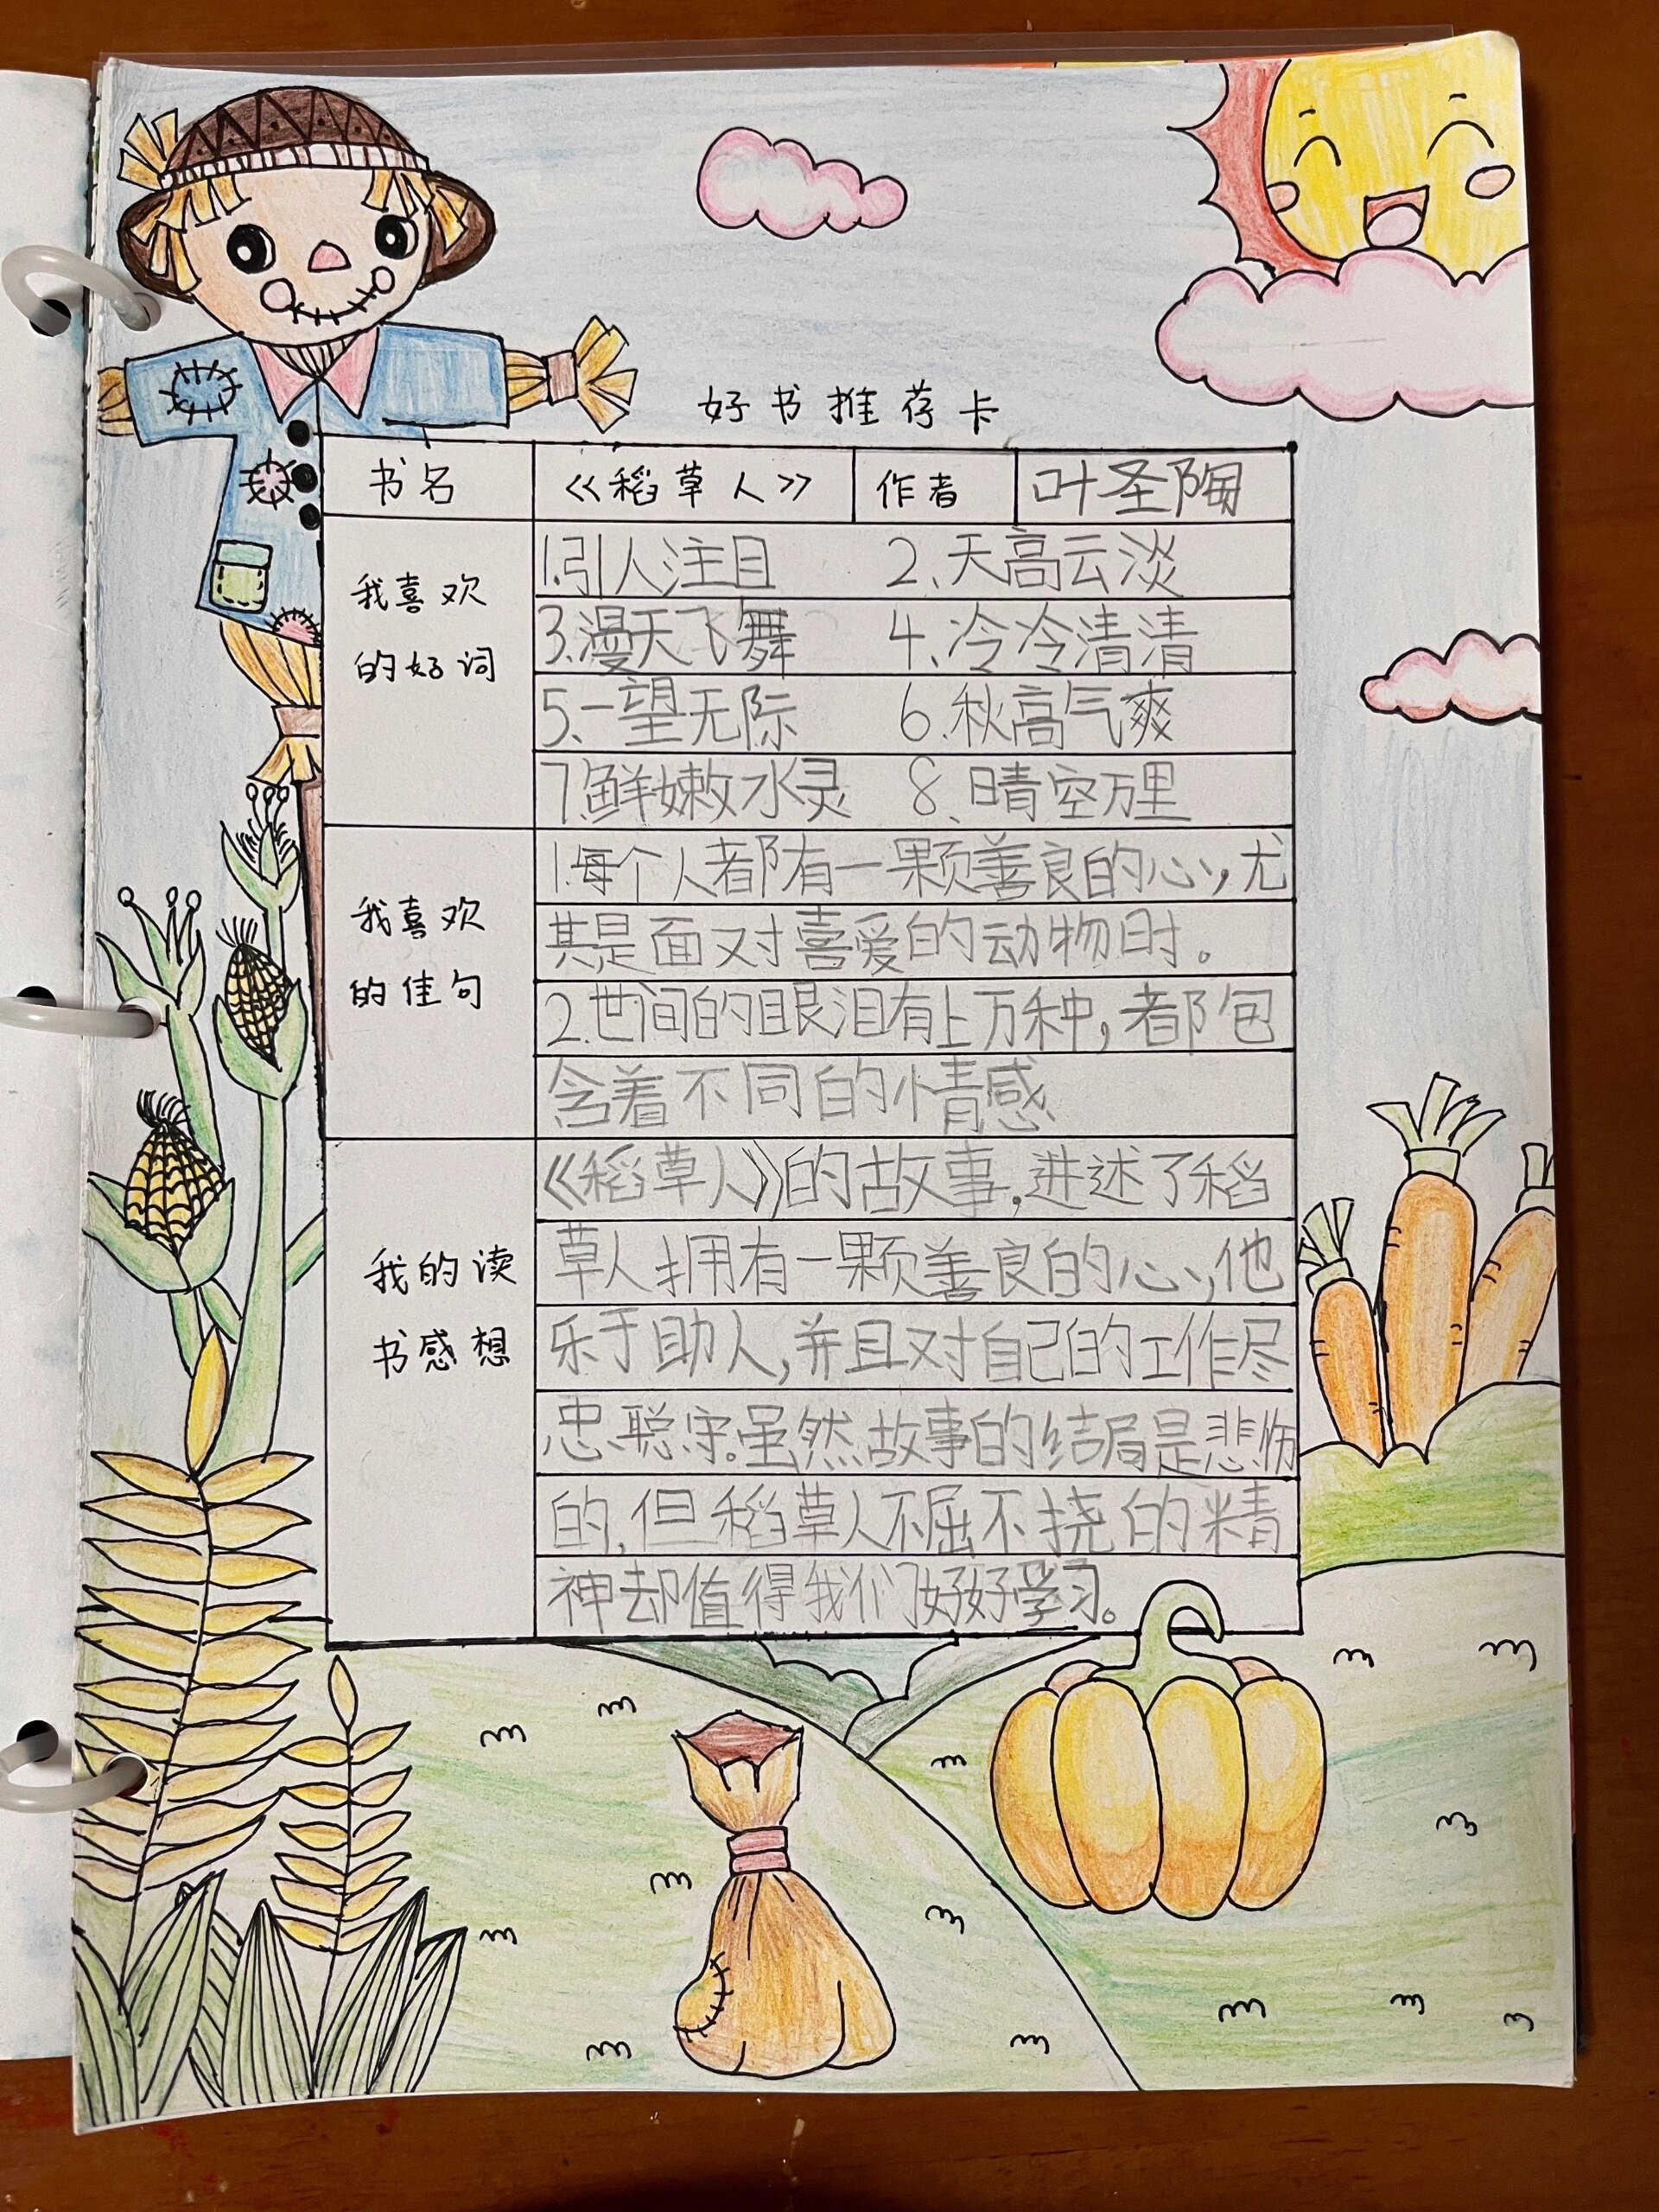 好书推荐卡
书名 《稻草人》 作者 叶圣陶
我喜欢的好词
1.引人注目 2、天高云淡
3.漫天飞舞 4、冷冷清清
5、一望无际 6.秋高气爽
7.鲜嫩水灵 8、晴空万里
我喜欢的佳句
1.每个人都有一颗善良的心,尤
其是面对喜爱的动物时。
2.世间的眼泪有上万种,都包
含着不同的情感
我的读书感想
《稻草人》的故事,讲述了稻
草人拥有一颗善良的心,他
乐于助人,并且对自己的工作尽
忠聪守。虽然故事的结局是悲伤
的,但稻草人不屈不挠的精
神却值得我们好好学习。